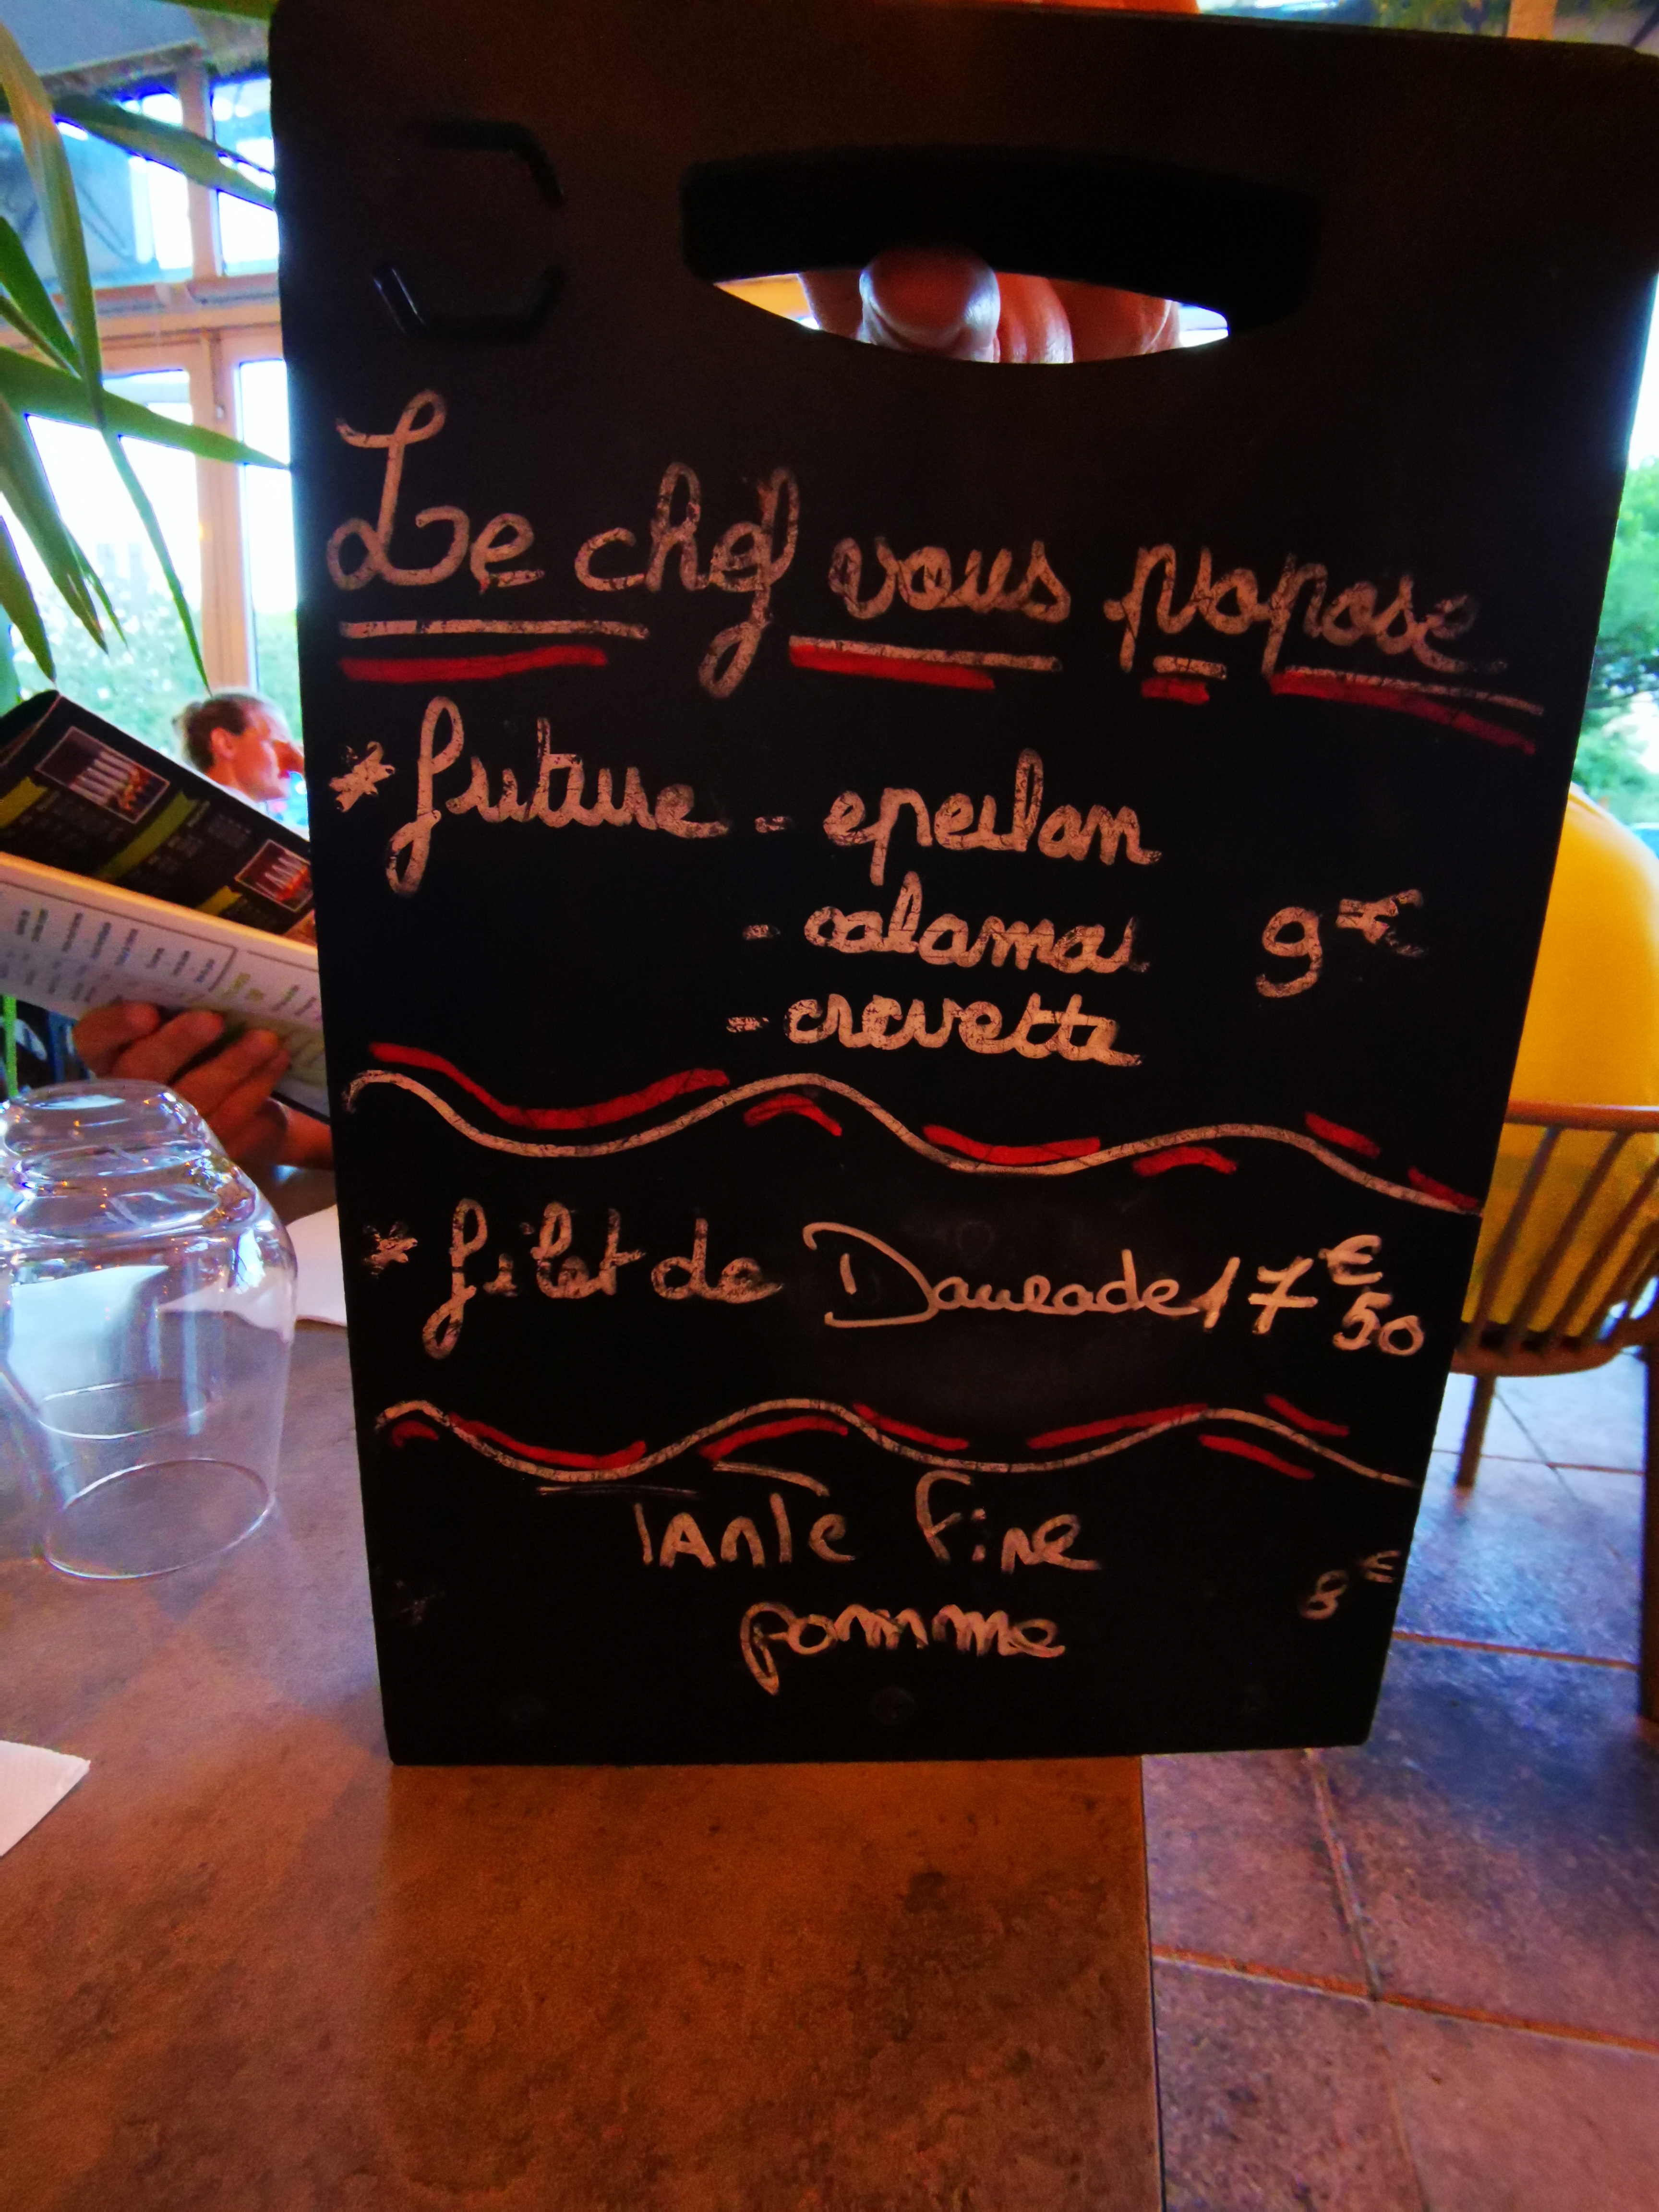 Le chef vous propose
* friture - eperlan
- calamar 9€
- crevette
* filet de Daurade 17€50
Tarte Fine
pomme 8€